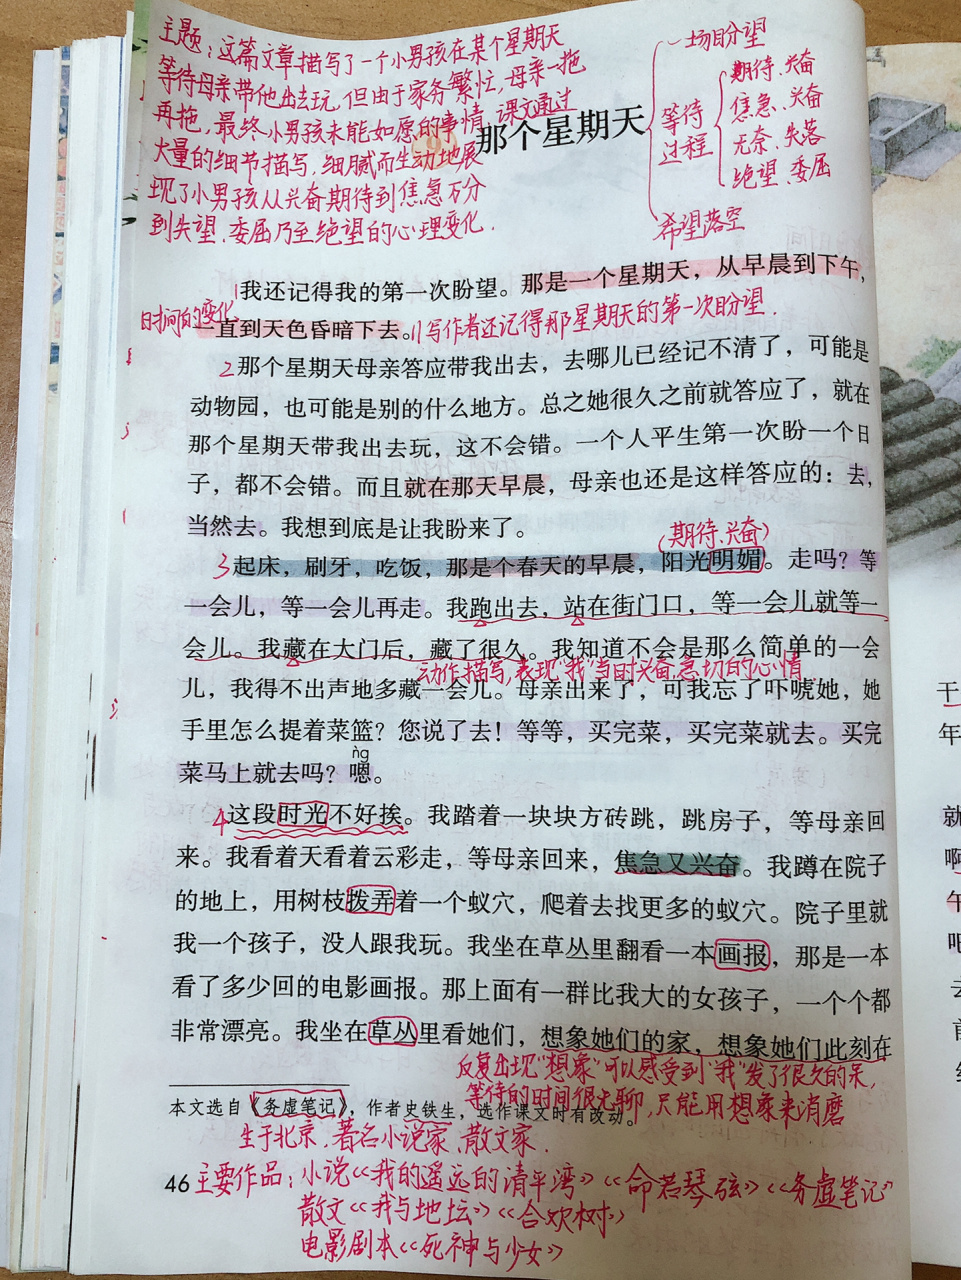 主题：这篇文章描写了一个小男孩在某个星期天
等待母亲带他出去玩，但由于家务繁忙，母亲一拖
再拖，最终小男孩未能如愿的事情，课文通过
大量的细节描写，细腻而生动地展
现了小男孩从兴奋期待到焦急万分
到失望、委屈乃至绝望的心理变化．
9 那个星期天
一场盼望
等待
过程
期待、兴奋
焦急、兴奋
无奈、失落
绝望、委屈
希望落空
1我还记得我的第一次盼望。那是一个星期天，从早晨到下午，
时间的变化
一直到天色昏暗下去。//写作者还记得那星期天的第一次盼望．
2那个星期天母亲答应带我出去，去哪儿已经记不清了，可能是
动物园，也可能是别的什么地方。总之她很久之前就答应了，就在
那个星期天带我出去玩，这不会错。一个人平生第一次盼一个日
子，都不会错。而且就在那天早晨，母亲也还是这样答应的：去，
当然去。我想到底是让我盼来了。
（期待、兴奋）
3起床，刷牙，吃饭，那是个春天的早晨，阳光明媚。走吗？等
一会儿，等一会儿再走。我跑出去，站在街门口，等一会儿就等一
会儿。我藏在大门后，藏了很久。我知道不会是那么简单的一会
动作描写，表现“我”当时兴奋、急切的心情．
儿，我得不出声地多藏一会儿。母亲出来了，可我忘了吓唬她，她
手里怎么提着菜篮？您说了去！等等，买完菜，买完菜就去。买完
ǹg
菜马上就去吗？嗯。
4这段时光不好挨。我踏着一块块方砖跳，跳房子，等母亲回
来。我看着天看着云彩走，等母亲回来，焦急又兴奋。我蹲在院子
的地上，用树枝拨弄着一个蚁穴，爬着去找更多的蚁穴。院子里就
我一个孩子，没人跟我玩。我坐在草丛里翻看一本画报，那是一本
看了多少回的电影画报。那上面有一群比我大的女孩子，一个个都
非常漂亮。我坐在草丛里看她们，想象她们的家，想象她们此刻在
反复出现“想象”可以感受到“我”发了很久的呆，
等待的时间很无聊，只能用想象来消磨
本文选自《务虚笔记》，作者史铁生，选作课文时有改动。
生于北京，著名小说家、散文家．
46
主要作品：小说《我的遥远的清平湾》《命若琴弦》《务虚笔记》
散文《我与地坛》《合欢树》
电影剧本《死神与少女》